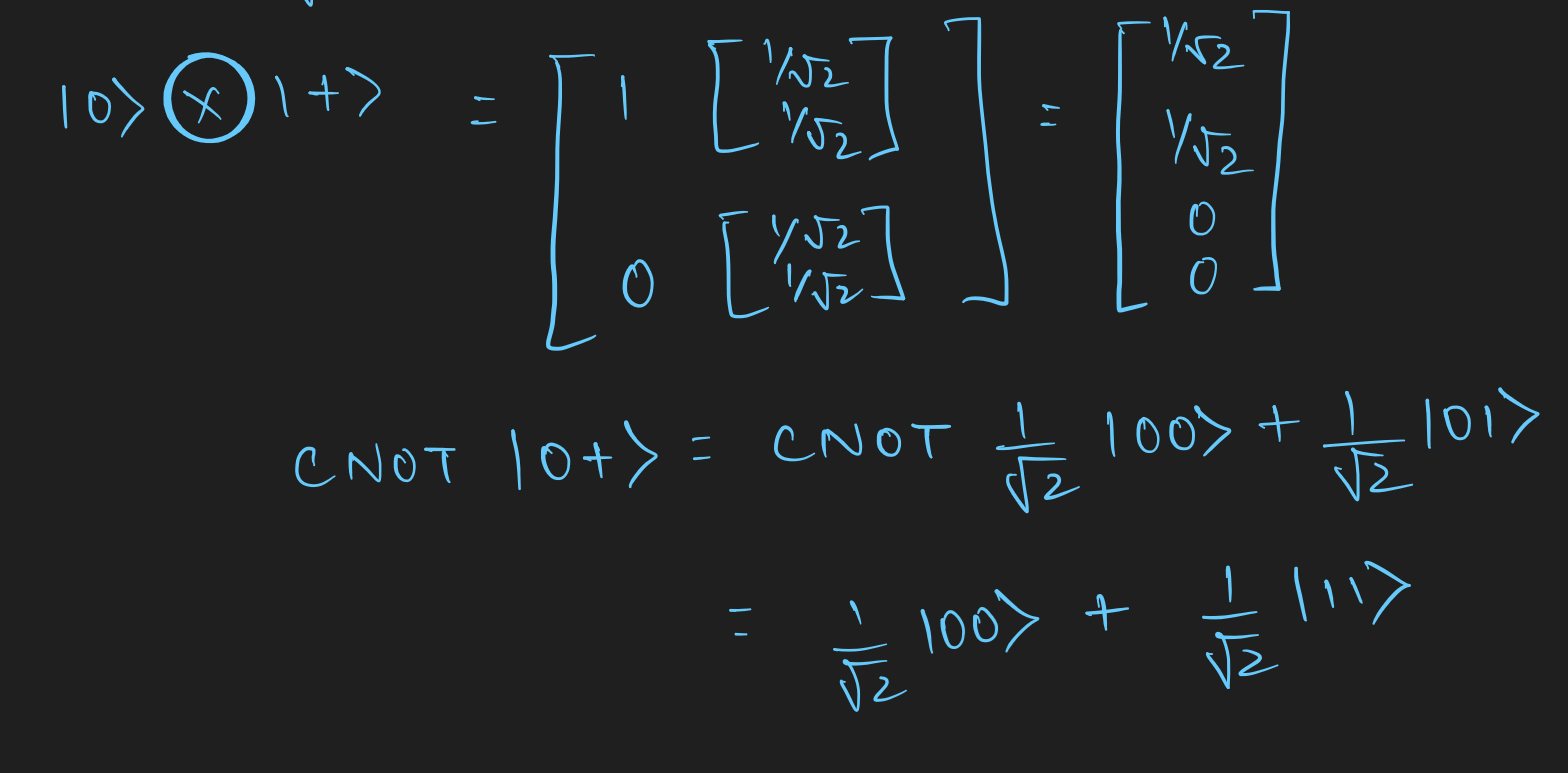 |0⟩ ⊗ |+⟩ = [ 1 [ 1/√2 1/√2 ] 0 [ 1/√2 1/√2 ] ] = [ 1/√2 1/√2 0 0 ]
CNOT |0+⟩ = CNOT 1/√2 |00⟩ + 1/√2 |01⟩
= 1/√2 |00⟩ + 1/√2 |11⟩